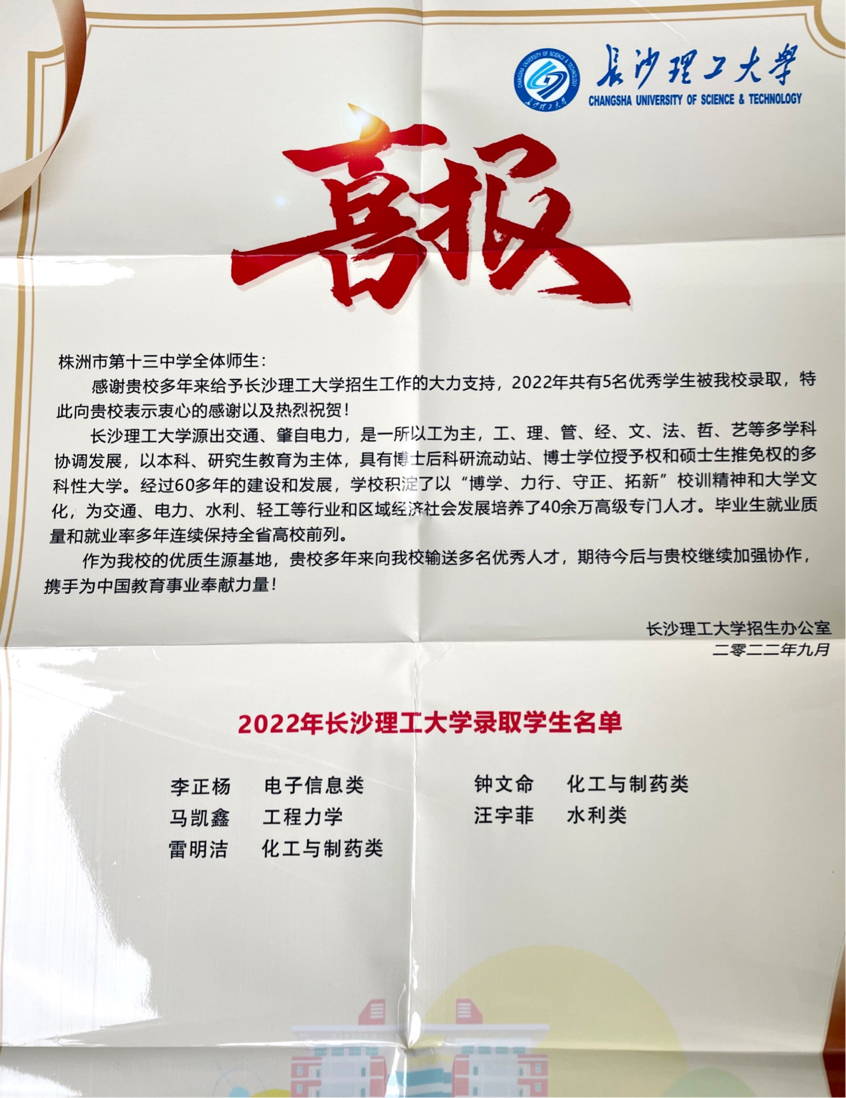 長沙理工大學
CHANGSHA UNIVERSITY OF SCIENCE & TECHNOLOGY
喜报
株洲市第十三中学全体师生：
感谢贵校多年来给予长沙理工大学招生工作的大力支持，2022年共有5名优秀学生被我校录取，特
此向贵校表示衷心的感谢以及热烈祝贺！
长沙理工大学源出交通、肇自电力，是一所以工为主，工、理、管、经、文、法、哲、艺等多学科
协调发展，以本科、研究生教育为主体，具有博士后科研流动站、博士学位授予权和硕士生推免权的多
科性大学。经过60多年的建设和发展，学校积淀了以“博学、力行、守正、拓新”校训精神和大学文
化，为交通、电力、水利、轻工等行业和区域经济社会发展培养了40余万高级专门人才。毕业生就业质
量和就业率多年连续保持全省高校前列。
作为我校的优质生源基地，贵校多年来向我校输送多名优秀人才，期待今后与贵校继续加强协作，
携手为中国教育事业奉献力量！
长沙理工大学招生办公室
二零二二年九月
2022年长沙理工大学录取学生名单
李正杨 电子信息类 钟文命 化工与制药类
马凯鑫 工程力学 汪宇菲 水利类
雷明洁 化工与制药类